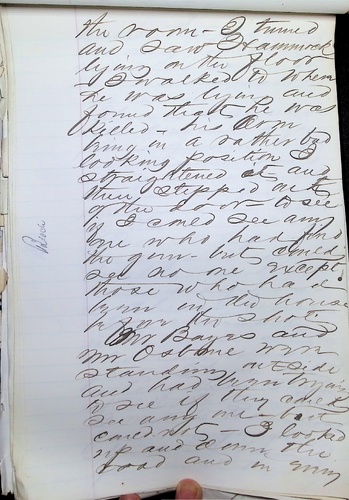 the room - I turned
and saw Hammock
lying on the floor
- I walked to where
he was lying and
found that he was
killed - his arm
lying in a rather bad
looking position I
straightened it and
then stepped out
of the door - to see
if I could see any
one who had fired
the gun - but could
see no one except
those who had
been in the house
before the shot
Mr Bayes and
Mr Osborne were
standing outside
and had been trying
to see if they could
see any one - but
could not - I looked
up and down the
road and in every